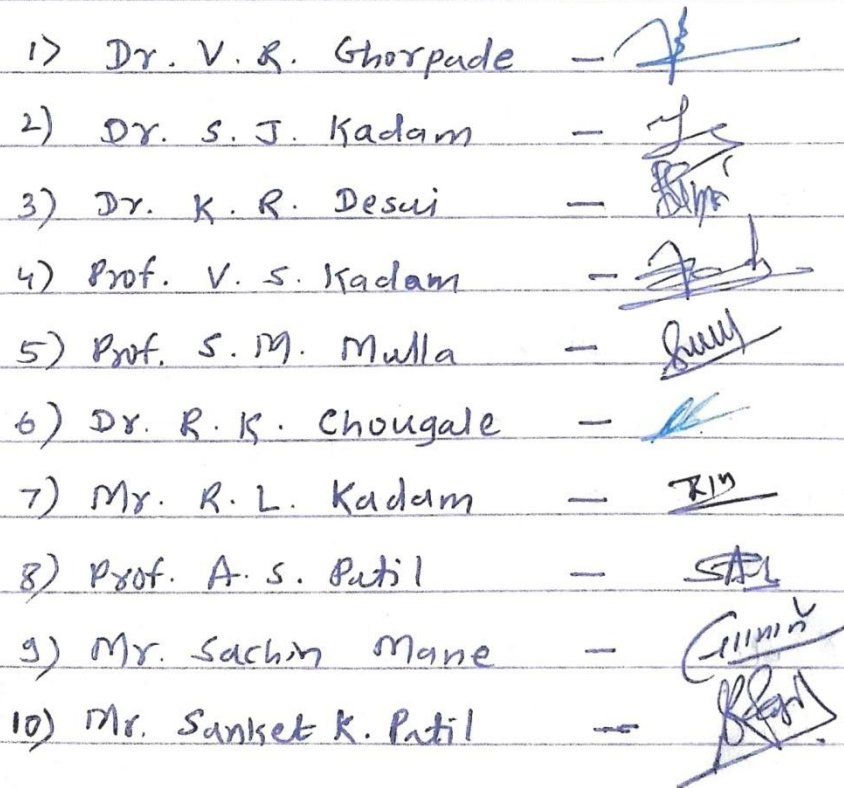 1) Dr. V. R. Ghorpade -
2) Dr. S. J. Kadam -
3) Dr. K. R. Desai -
4) Prof. V. S. Kadam -
5) Prof. S. M. Mulla -
6) Dr. R. K. Chougale -
7) Mr. R. L. Kadam -
8) Prof. A. S. Patil -
9) Mr. Sachin Mane -
10) Mr. Sanket K. Patil -